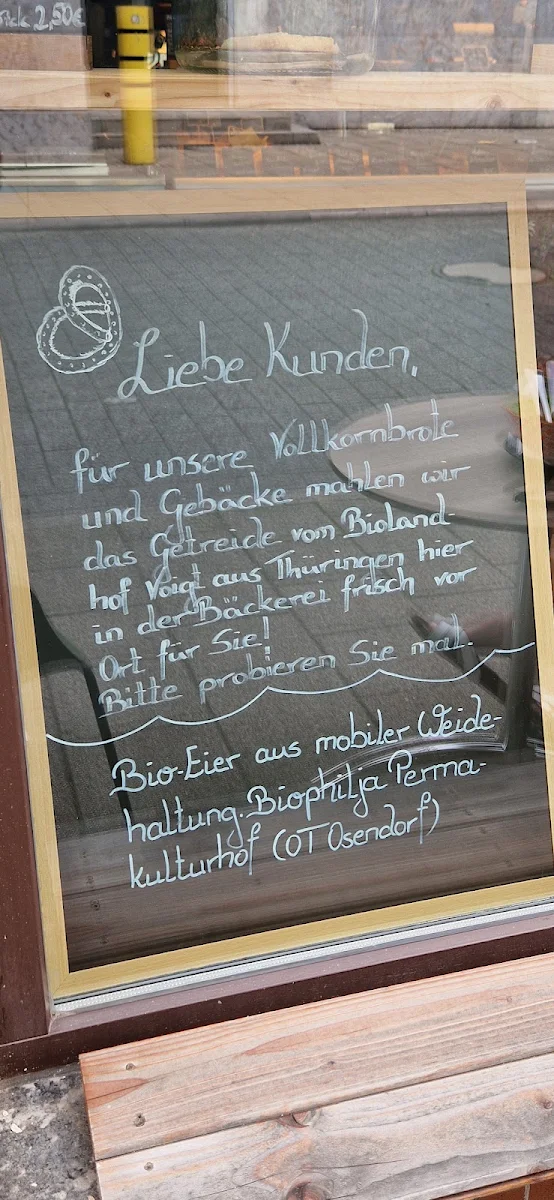 2,50€
Liebe Kunden,
für unsere Vollkornbrote
und Gebäcke mahlen wir
das Getreide vom Bioland-
hof Voigt aus Thüringen hier
in der Bäckerei frisch vor
Ort für Sie!
Bitte probieren Sie mal.
Bio-Eier aus mobiler Weide-
haltung. Biophilja Perma-
kulturhof (OT Osendorf)